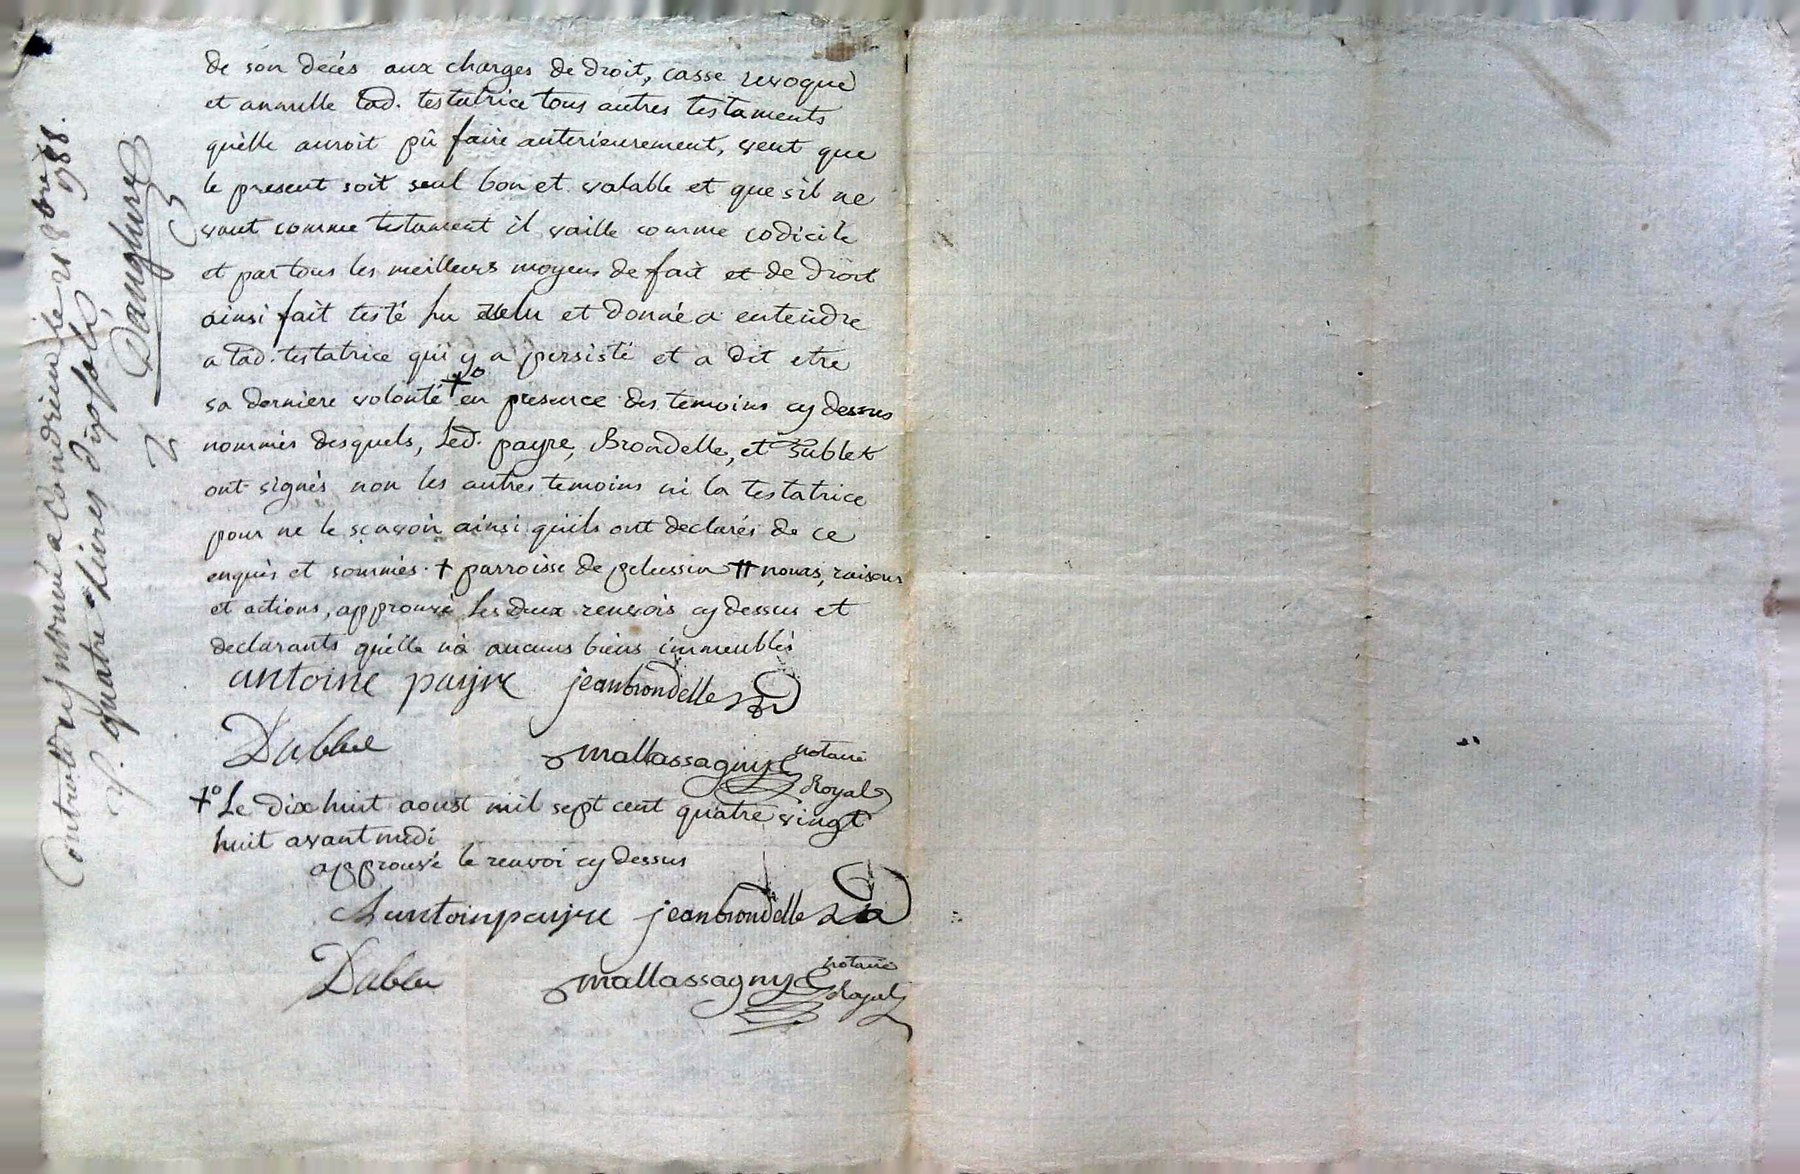 de son decés aux charges de droit, casse revoque
et annulle lad. testatrice tous autres testaments
qu'elle auroit pû faire anterieurement, veut que
le present soit seul bon et valable et que s'il ne
vaut comme testament il vaille comme codicile
et par tous les meilleurs moyens de fait et de droit
ainsi fait testé lu relu et donné a entendre
a lad. testatrice qui y a persisté et a dit etre
sa derniere volonté +o en presence des temoins cy dessus
nommés desquels, led. payre, Brondelle, et Dublet
ont signés non les autres temoins ni la testatrice
pour ne le sçavoir ainsi qu'ils ont declarés de ce
enquis et sommés. + parroisse de pelussin ++ noms, raisons
et actions, approuvé les deux renvois cy dessus et
declarants qu'elle n'a aucuns biens immeublés
antoine payre jeanbrondelle
mallassagny notaire
Royal
+o Le dix huit aoust mil sept cent quatre vingt
huit avant midi
approuvé le renvoi cy dessus
antoinpayre jeanbrondelle
mallassagny notaire
Royal
Controllé et insinué a Condrieu le 21 8bre 1788.
quatre livres dix sols